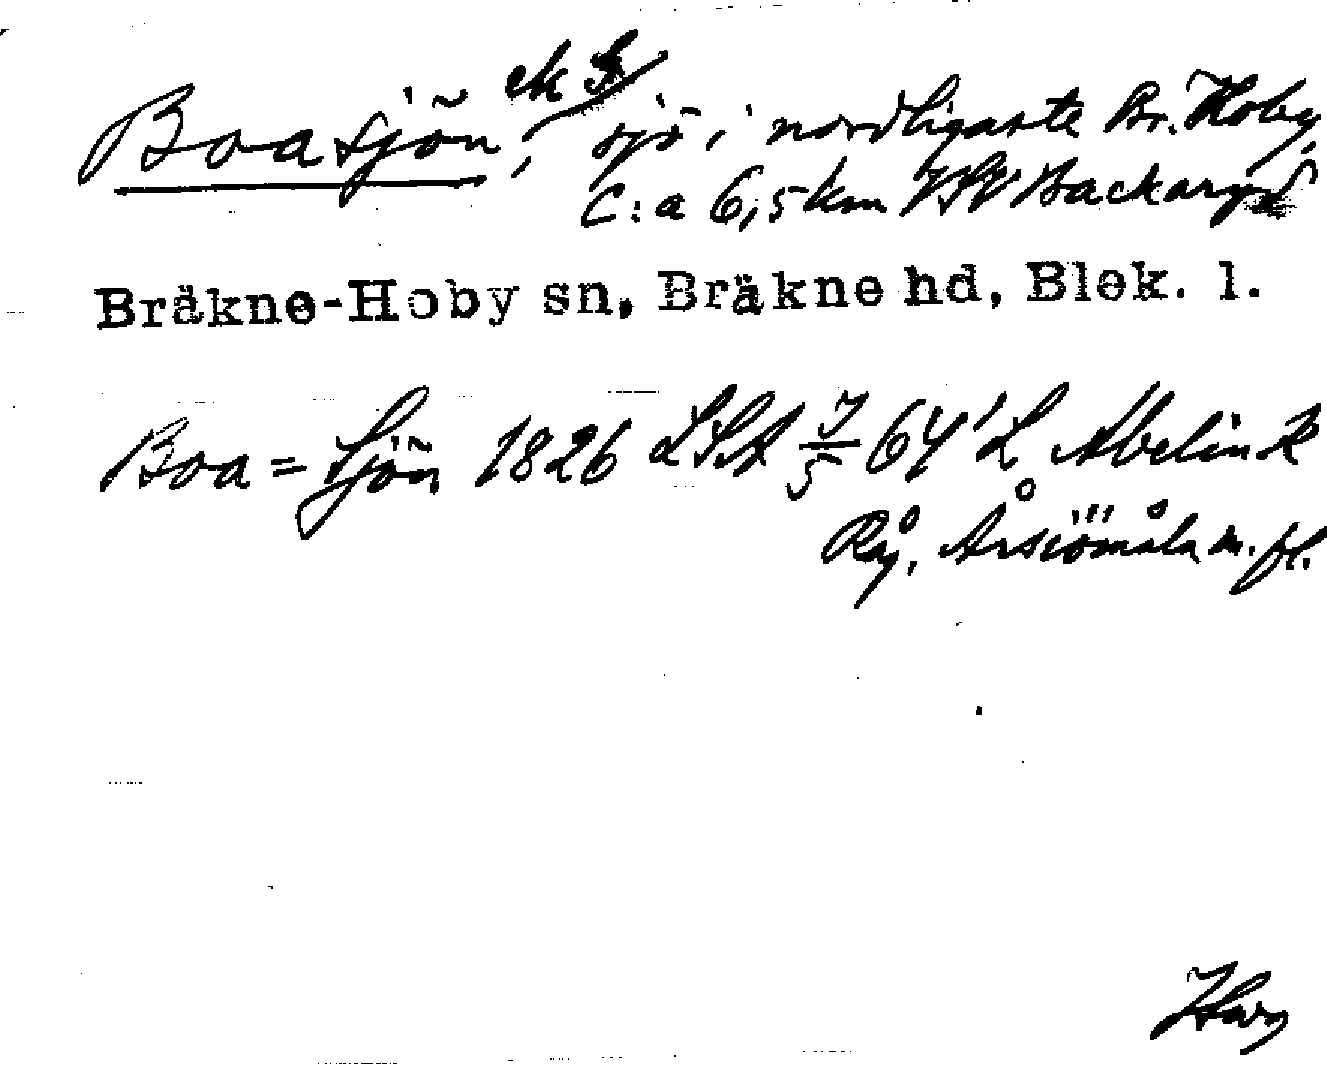 Boasjön, ek S, sjö i nordligaste Br. Hoby,
c:a 6,5 km VSV Backaryd
Bräkne-Hoby sn, Bräkne hd, Blek. l.
Boa=Sjön 1826 LSA 64 L Abelin K
Rå, Årsiömåla m. fl.